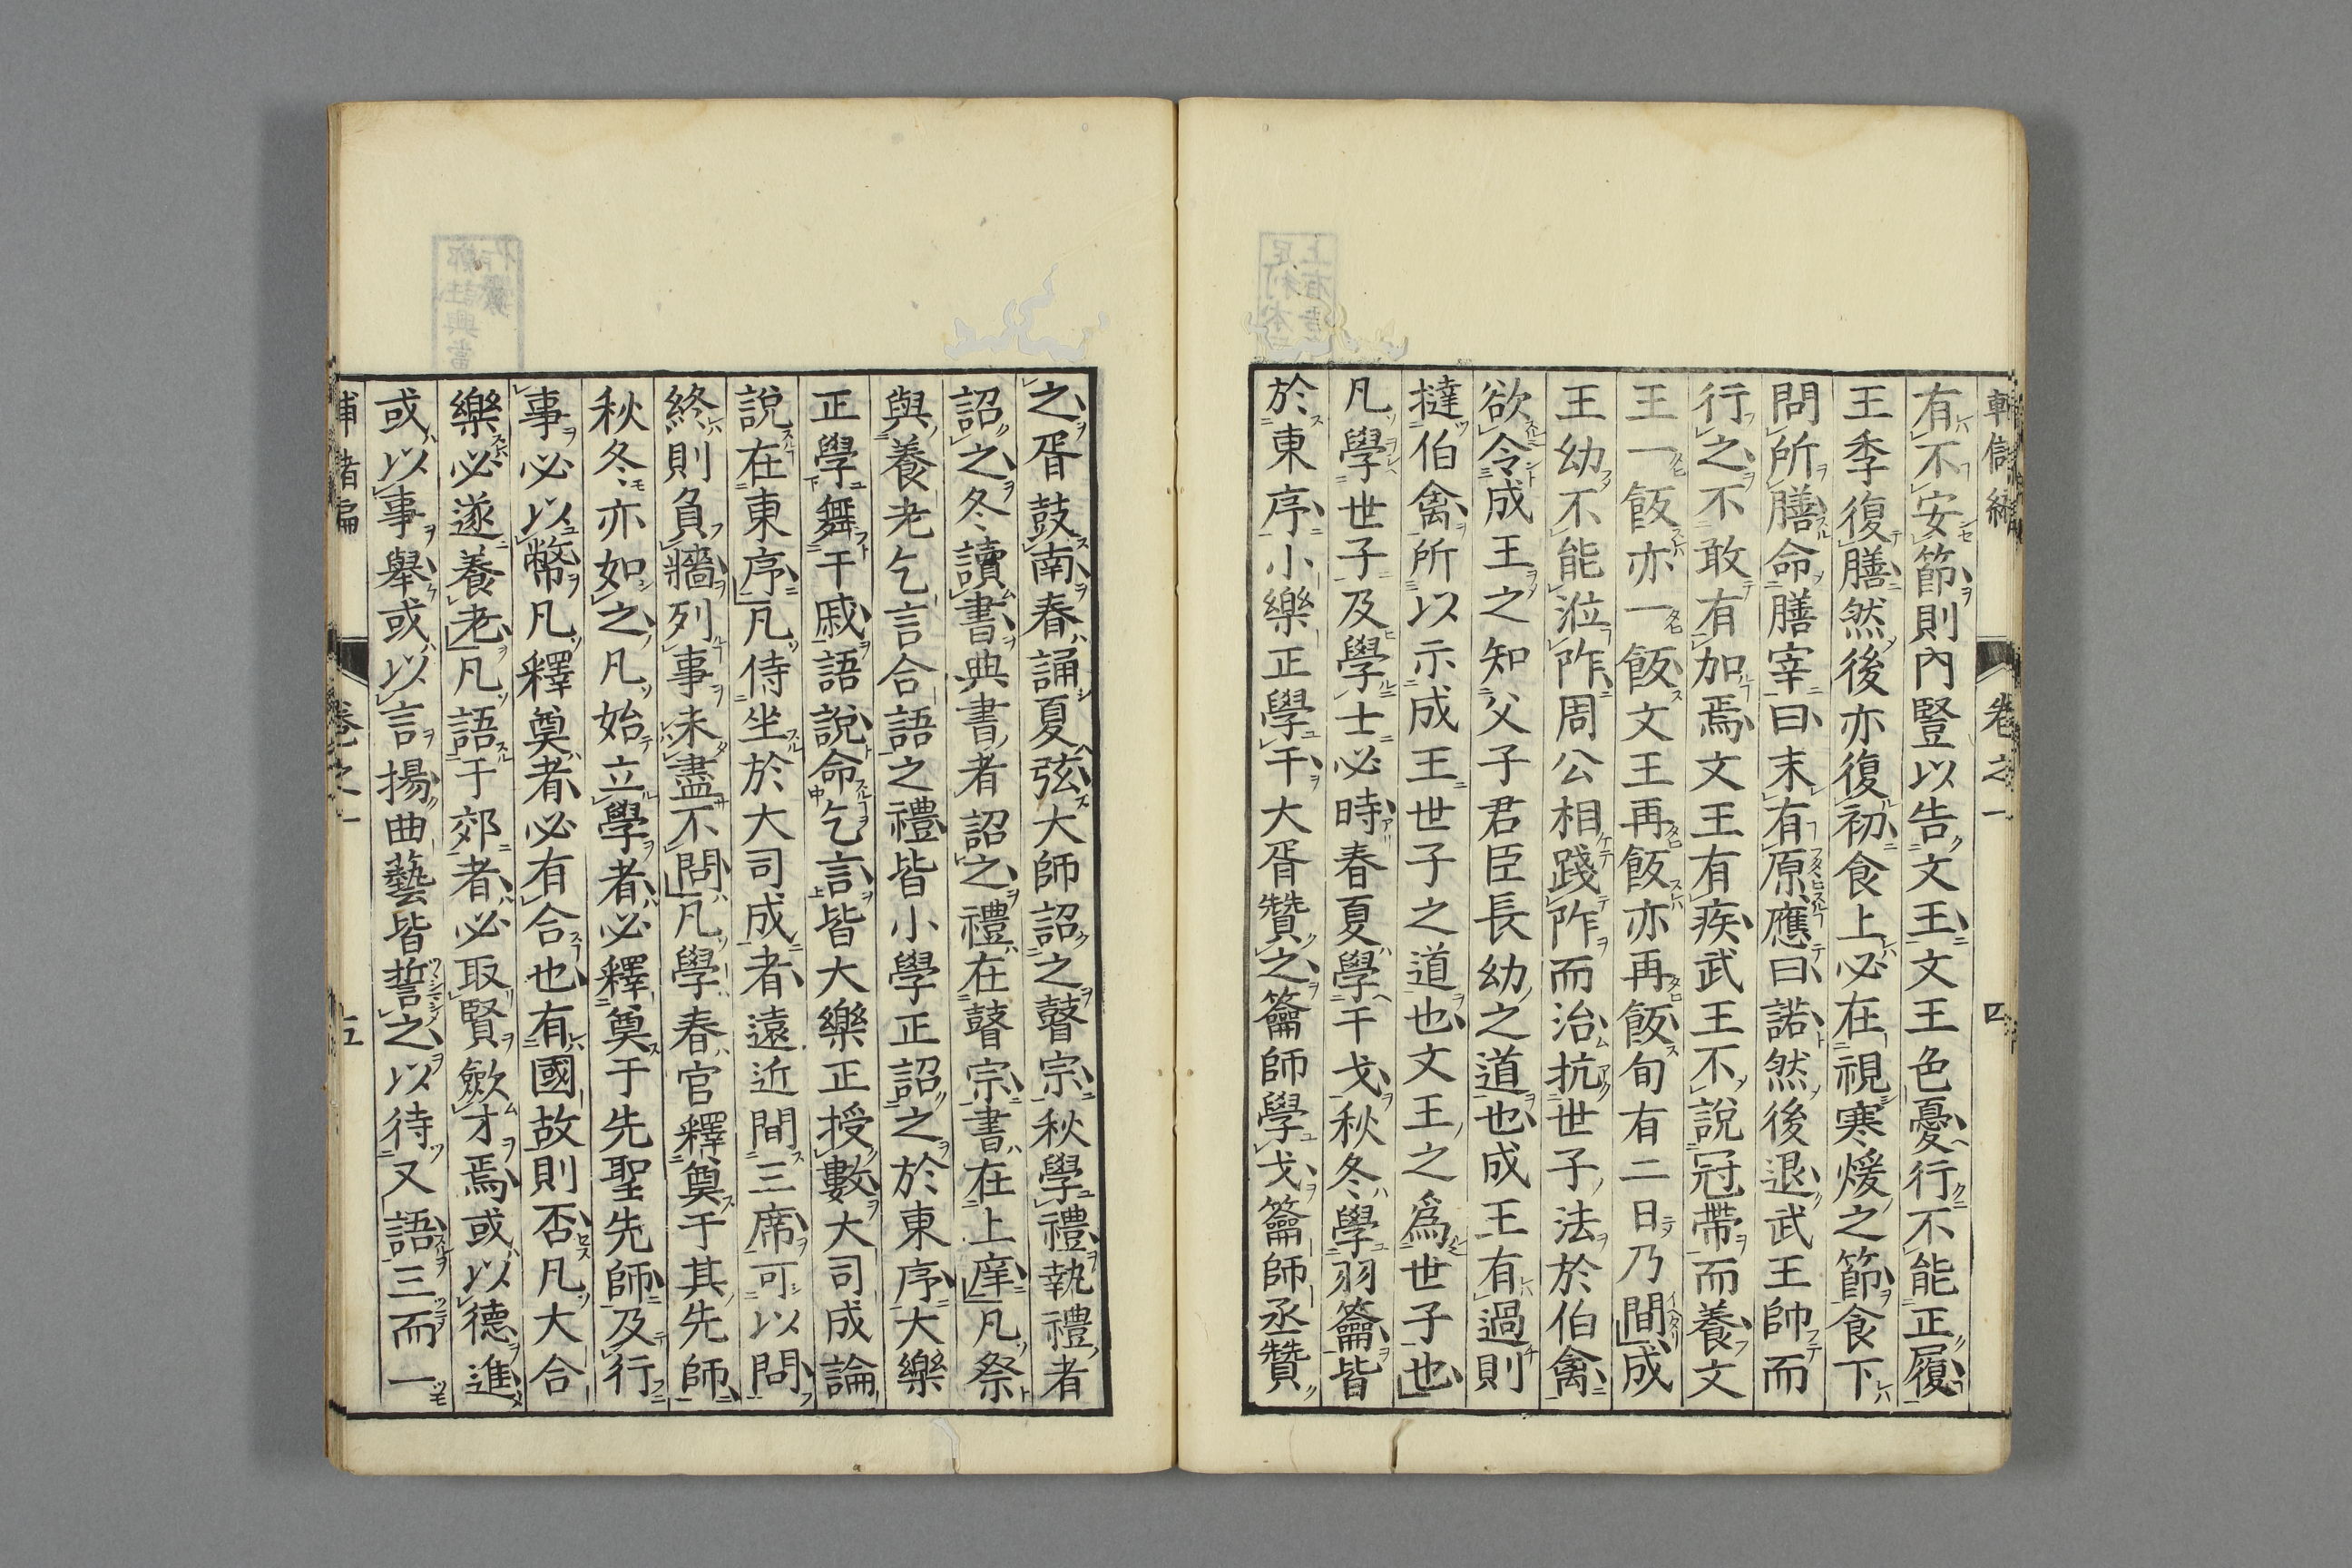 有不安節則內豎以告文王文王色憂行不能正履
王季復膳然後亦復初食上必在視寒煖之節食下
問所膳命膳宰曰末有原應曰諾然後退武王帥而
行之不敢有加焉文王有疾武王不說冠帶而養文
王一飯亦一飯文王再飯亦再飯旬有二日乃間成
王幼不能涖阼周公相踐阼而治抗世子法於伯禽
欲令成王之知父子君臣長幼之道也成王有過則
撻伯禽所以示成王世子之道也文王之爲世子也
凡學世子及學士必時春夏學干戈秋冬學羽籥皆
於東序小樂正學干大胥贊之籥師學戈籥師丞贊
之胥鼓南春誦夏弦大師詔之瞽宗秋學禮執禮者
詔之冬讀書典書者詔之禮在瞽宗書在上庠凡祭
與養老乞言合語之禮皆小學正詔之於東序大樂
正學舞干戚語說命乞言皆大樂正授數大司成論
說在東序凡侍坐於大司成者遠近間三席可以問
終則負牆列事未盡不問凡學春官釋奠于其先師
秋冬亦如之凡始立學者必釋奠于先聖先師及行
事必以幣凡釋奠者必有合也有國故則否凡大合
樂必遂養老凡語于郊者必取賢斂才焉或以德進
或以事舉或以言揚曲藝皆誓之以待又語三而一
卷之一
四
五